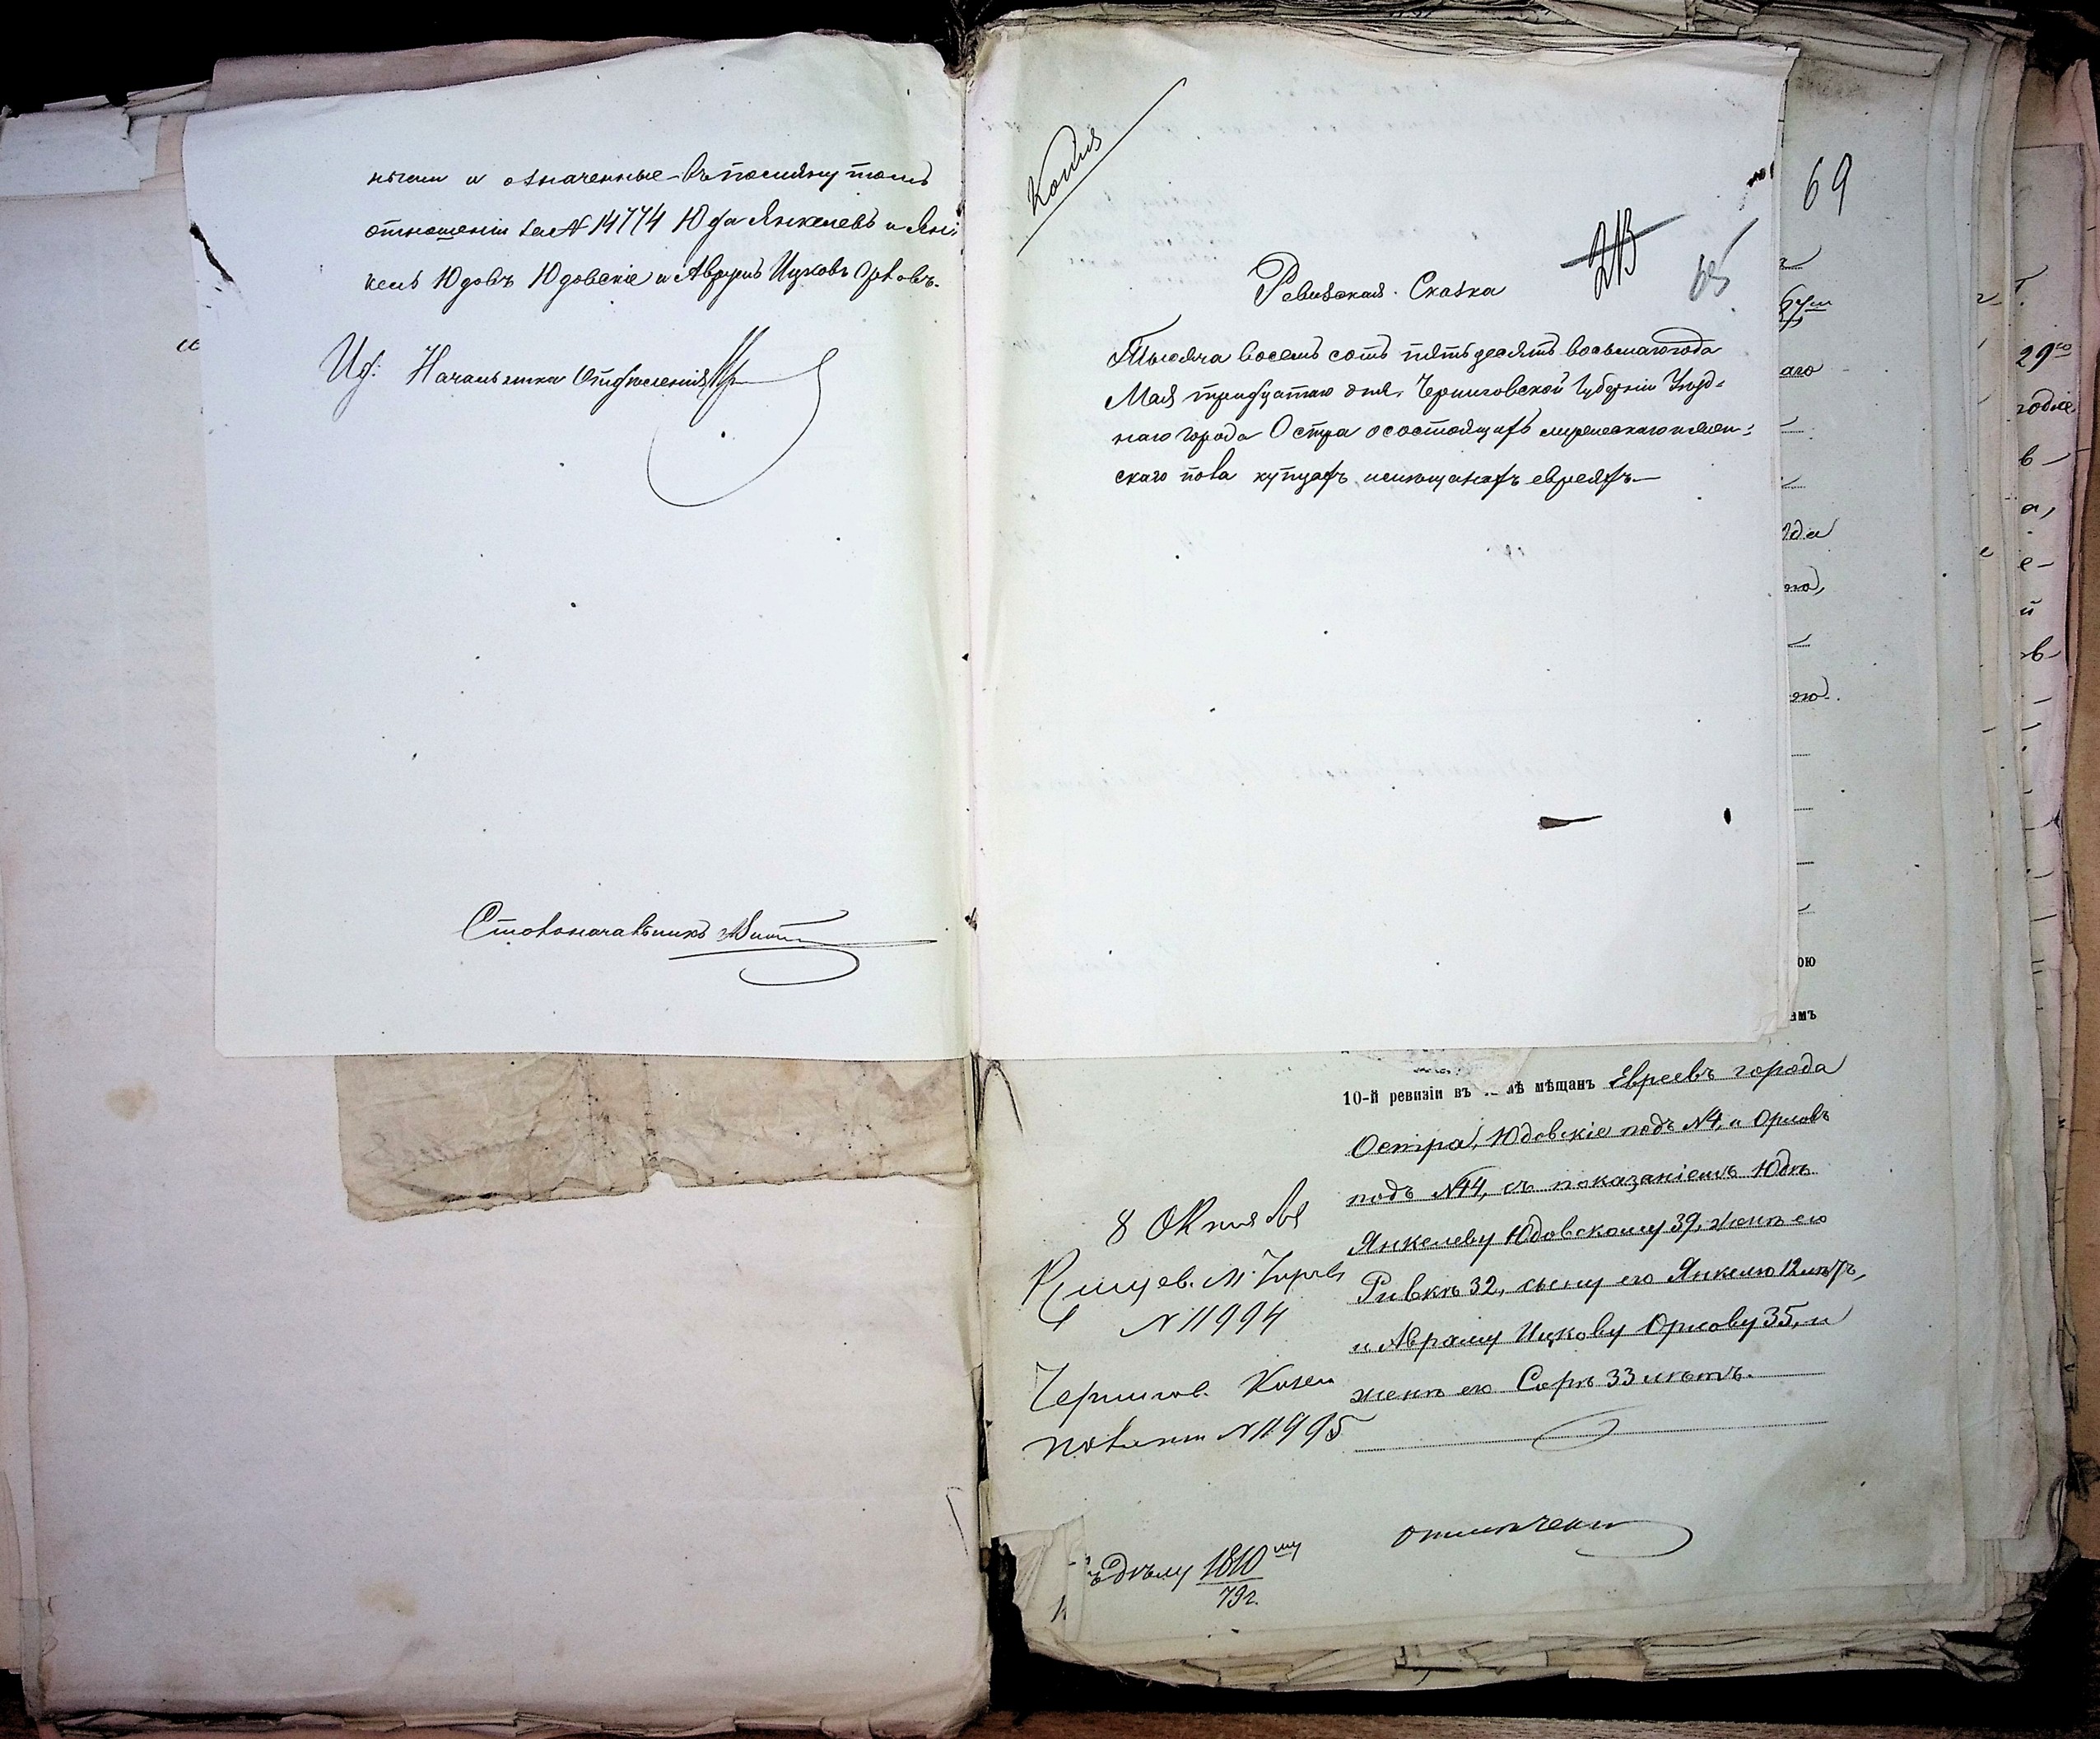 ными и означенные въ помянутомъ
отношеніи за № 14774 Юда Янкелевъ и Ян
кель Юдовъ Юдовскіе и Аврумъ Ицковъ Орловъ.
Иф: Начальника Отдѣленія
Столоначальникъ
Копія
69
213
65
Ревизская Сказка
Тысяча восемь сотъ пятьдесятъ восьмаго года
Мая тридцатаго дня, Черниговской Губерніи Уѣзд-
наго города Остра о состоящихъ мужескаго и жен-
скаго пола купцахъ и мещанахъ евреяхъ
10-й ревизіи въ мѣщанъ Евреевъ города
Остра, Юдовскіе подъ №4, и Орловъ
подъ №14, съ показаніемъ Юдѣ
Янкелеву Юдовскому 39, женѣ его
Ривкѣ 32, сыну его Янкелю 12 лѣтъ,
и Авраму Ицкову Орлову 35, и
женѣ его Сорѣ 33 лѣтъ.
8 Октября
№ 11994
Чернигов. Казен
палат №11995
дѣлу 1810 му
79 г.
29 го